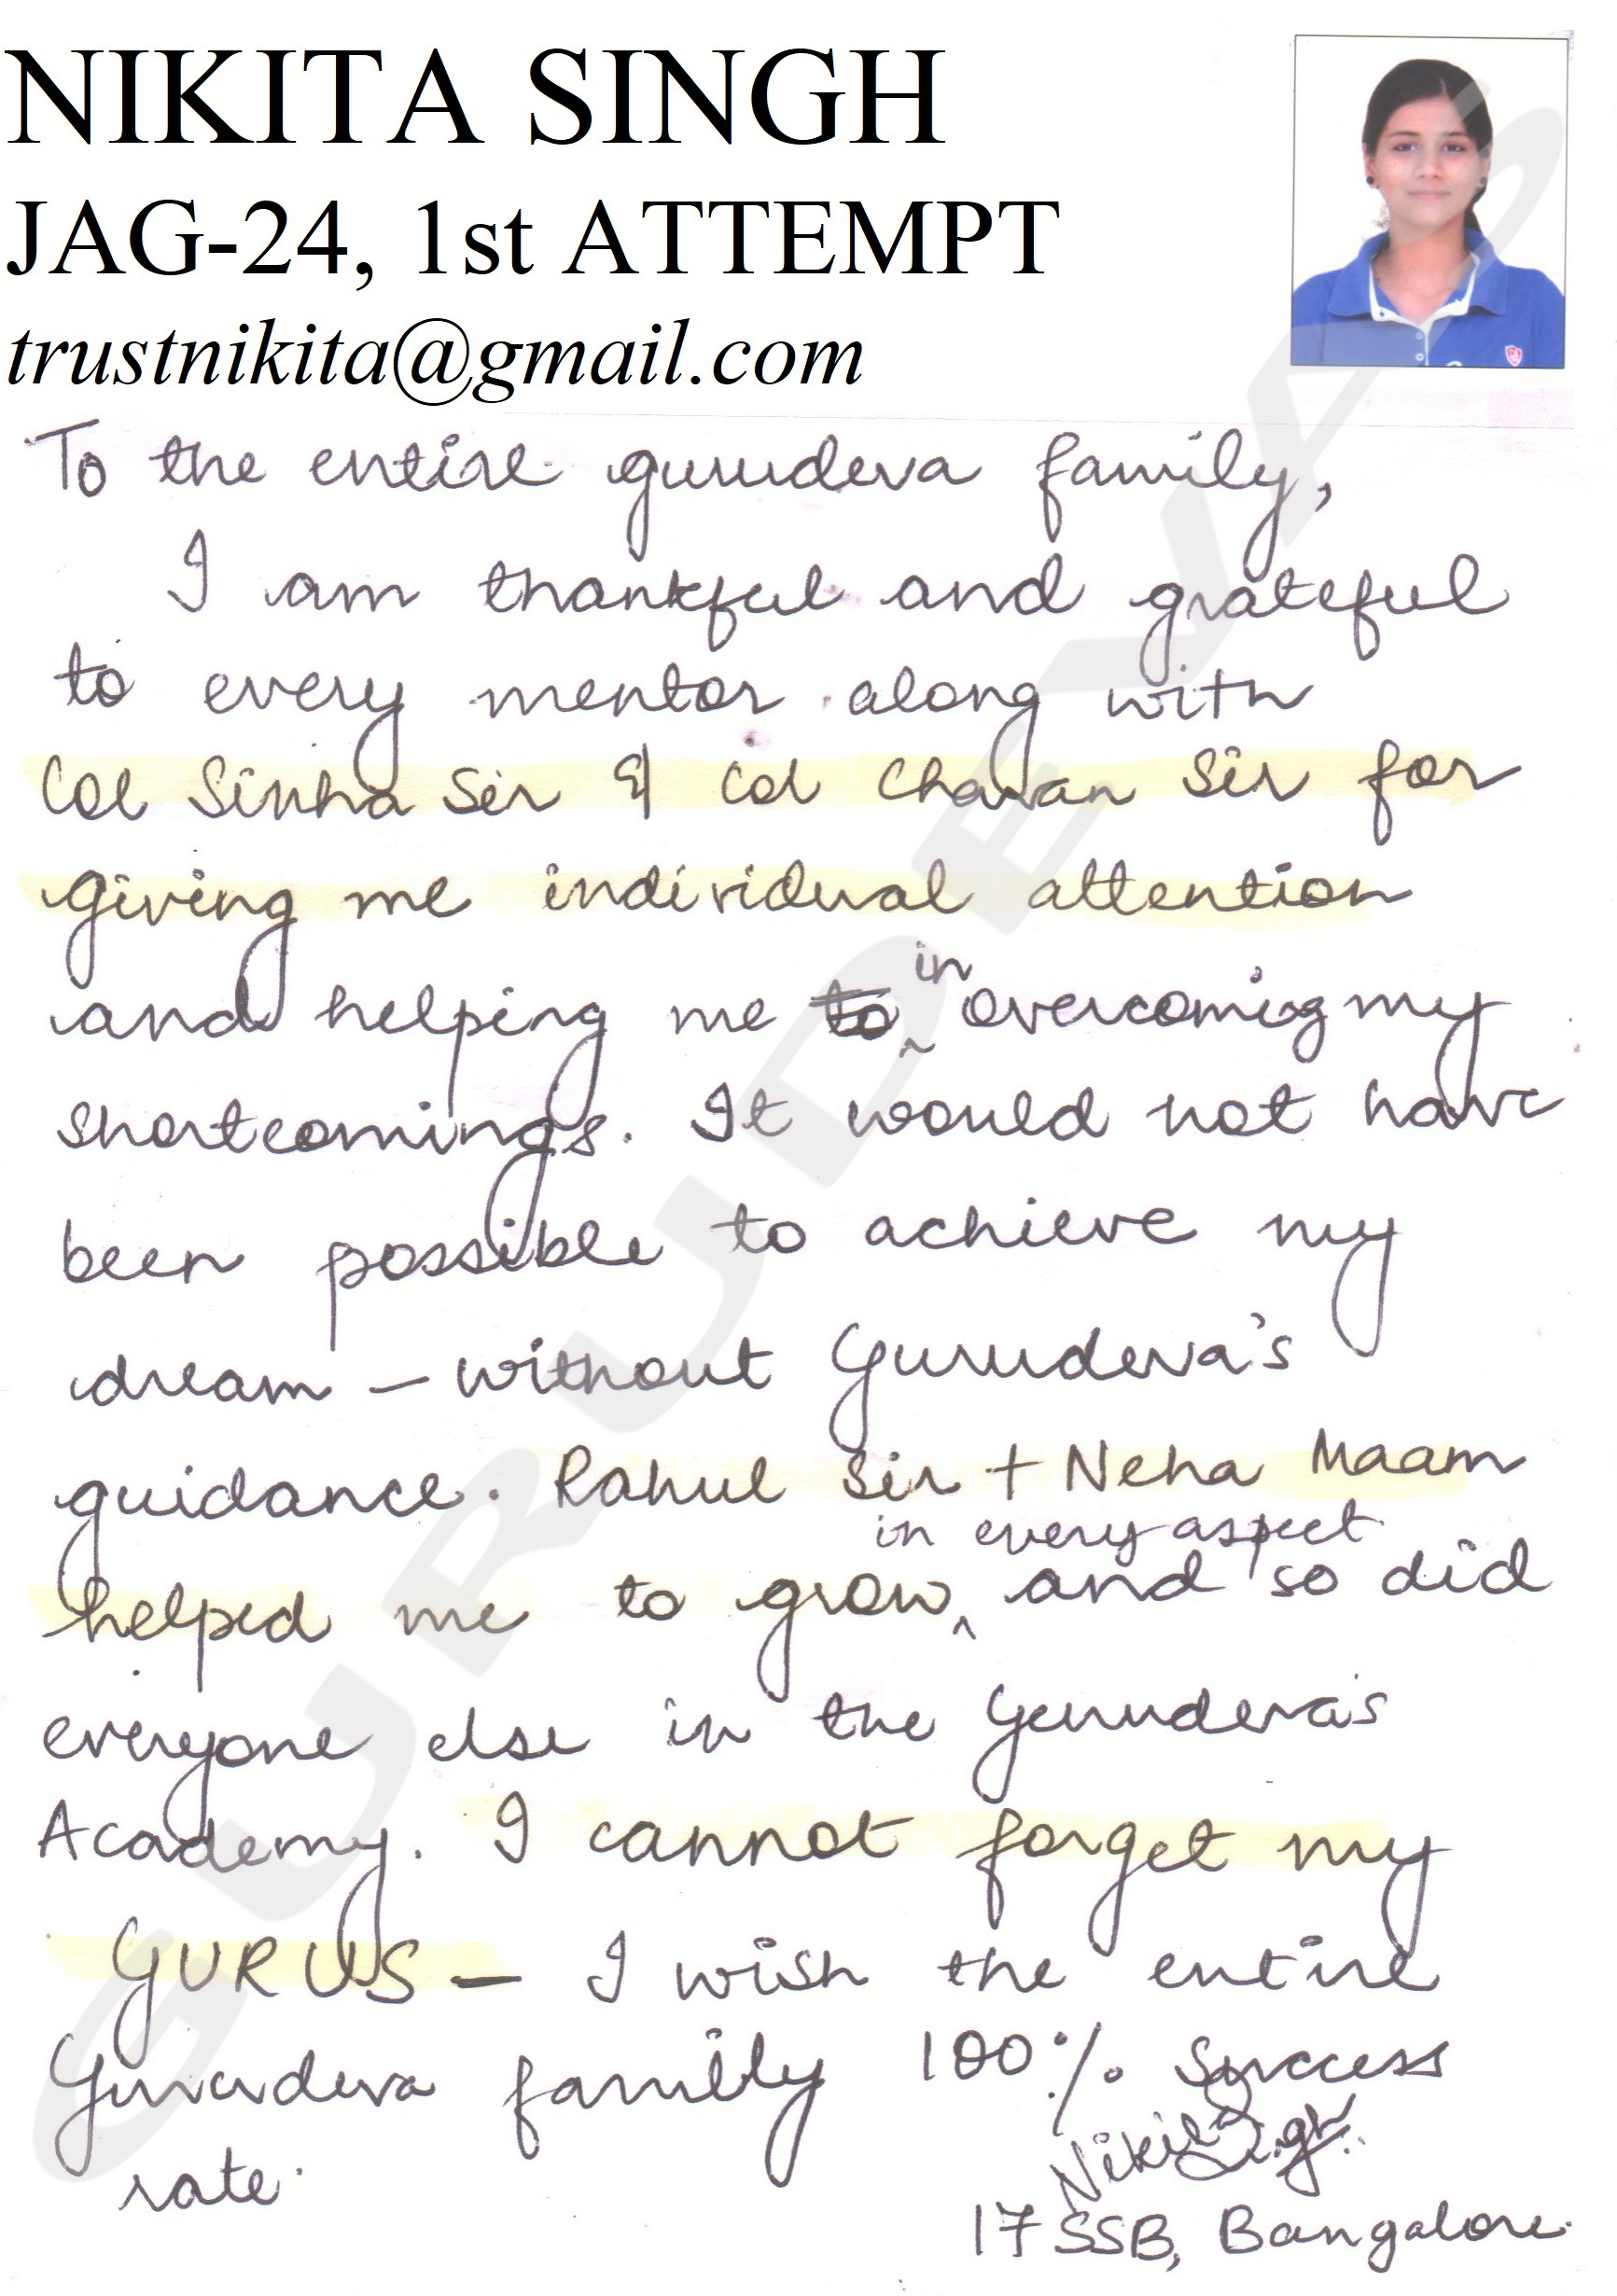 NIKITA SINGH
JAG-24, 1st ATTEMPT
trustnikita@gmail.com
To the entire gurudeva family,
I am thankful and grateful
to every mentor along with
Col Sinha Sir & Col Chavan Sir for
giving me individual attention
in
and helping me to overcoming my
shortcomings. It would not have
been possible to achieve my
dream – without Gurudeva's
guidance. Rahul Sir + Neha Maam
in every aspect
helped me to grow and so did
everyone else in the Gurudeva's
Academy. I cannot forget my
GURUS – I wish the entire
Gurudeva family 100% success
rate.
Nikita Singh
17 SSB, Bangalore.
GURUDEVAS